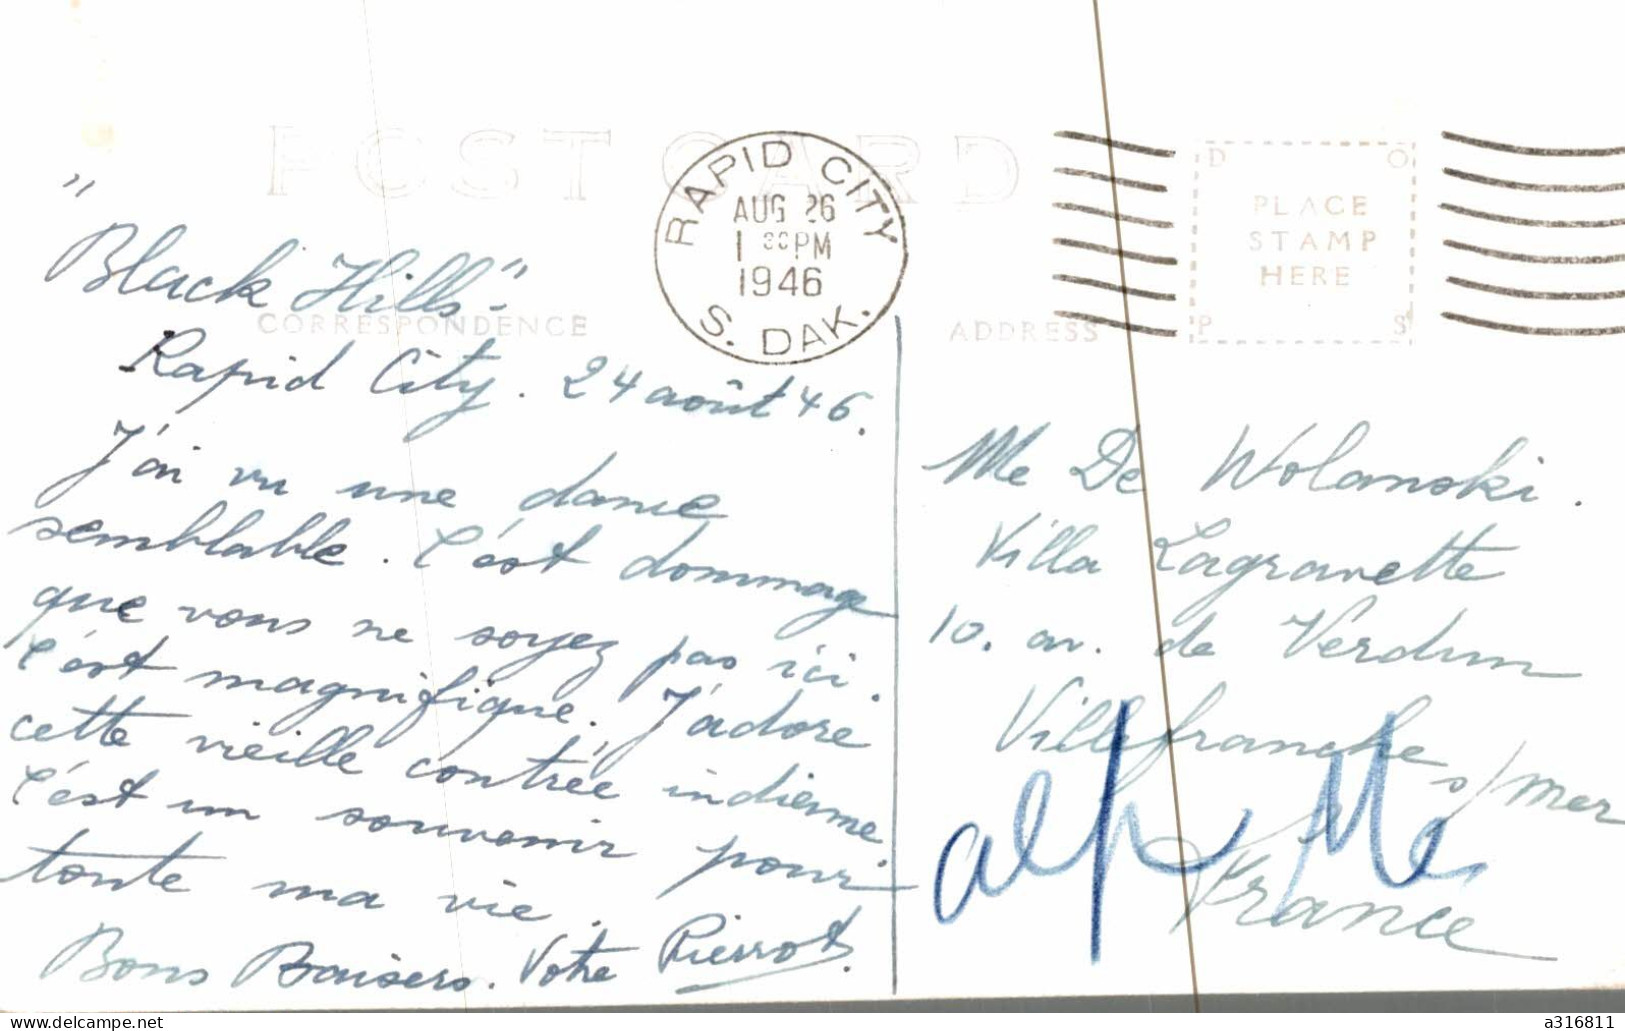 POST CARD
RAPID CITY
AUG 26
1 30 PM
1946
S. DAK.
D O
PLACE
STAMP
HERE
P S
CORRESPONDENCE
ADDRESS
"Black Hills"-
Rapid City. 24 août 46.
J'ai vu une danse
semblable. C'est dommage
que vous ne soyez pas ici.
C'est magnifique. J'adore
cette vieille contrée indienne.
C'est un souvenir pour
toute ma vie.
Bons Baisers. Votre Pierrot.
Me De Wolanski.
Villa Lagravette
10. av. de Verdun
Villefranche s/mer
alp Me
France
a316811